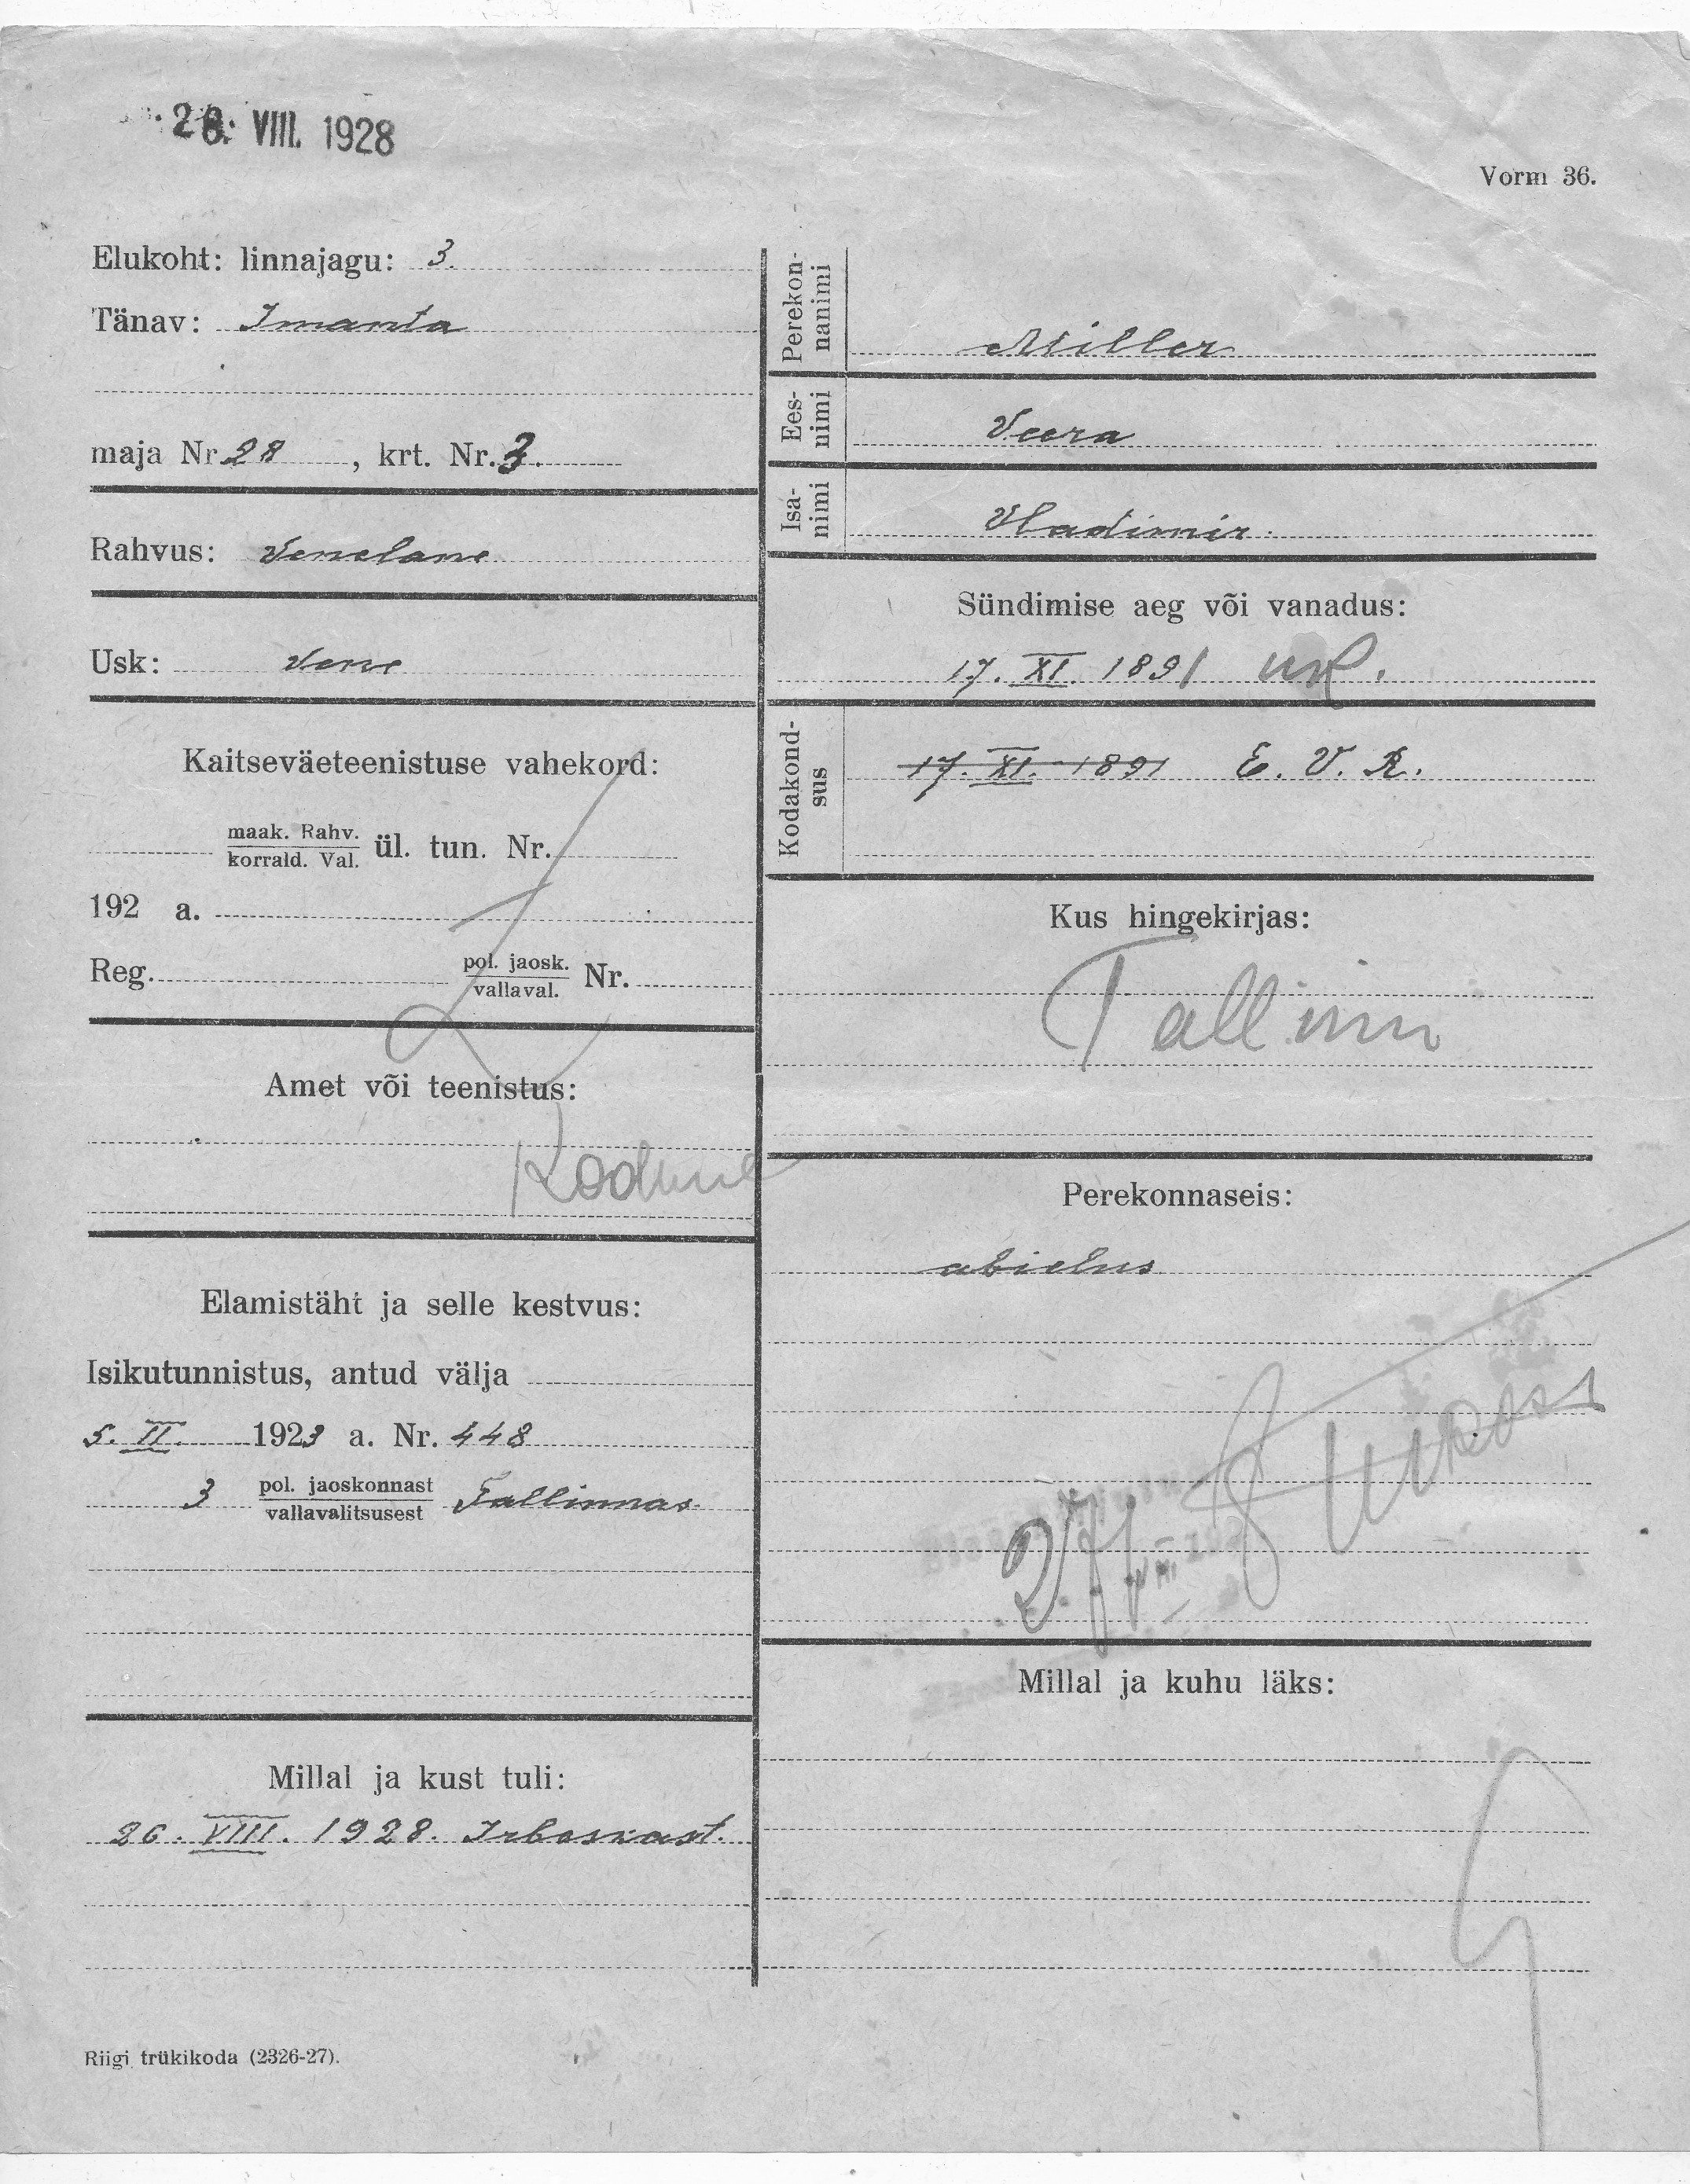 28. VIII. 1928
Vorm 36.
Elukoht: linnajagu: 3.
Tänav: Imanta
maja Nr. 28 , krt. Nr. 3.
Rahvus: Venelane
Usk: Vene
Kaitseväeteenistuse vahekord:
maak. Rahv.
korrald. Val. ül. tun. Nr.
192 a.
Reg. pol. jaosk.
vallaval. Nr.
Amet või teenistus:
Kodune
Elamistäht ja selle kestvus:
Isikutunnistus, antud välja
5. II. 1923 a. Nr. 448
3 pol. jaoskonnast
vallavalitsusest Tallinnas
Millal ja kust tuli:
26. VIII. 1928. Irboskast.
Riigi trükikoda (2326-27).
Perekon-
nanimi
Miller
Ees-
nimi
Veera
Isa-
nimi
Vladimir.
Sündimise aeg või vanadus:
17. XI. 1891 uk.
Kodakond-
sus
17. XI. 1891 E. V. R.
Kus hingekirjas:
Tallinn
Perekonnaseis:
abielus
27/VIII
Millal ja kuhu läks: